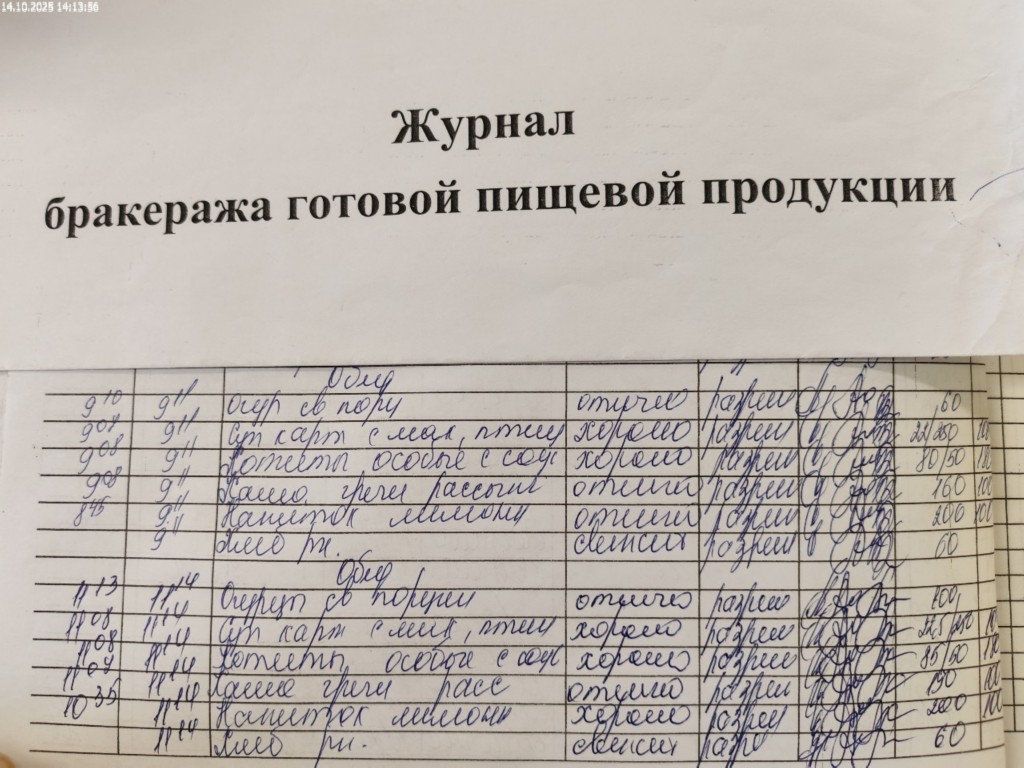 14.10.2025 14:13:56
Журнал
бракеража готовой пищевой продукции
Обед
9 10 9 11 Огур св порц отлично разреш 60
9 08 9 11 Суп карт с мак, птицы хорошо разреш 250 100
9 08 9 11 Котлеты особые с соус хорошо разреш 80/50 100
9 08 9 11 Каша гречн рассып отлично разреш 160 100
8 45 9 11 Напиток лимонн отлично разреш 200 100
9 11 Хлеб рж. разреш 60
Обед
11 13 11 14 Огурцы св порции отлично разреш 100
11 08 11 14 Суп карт с мак, птицы хорошо разреш 100
11 08 11 14 Котлеты особые с соус хорошо разреш 85/50 100
11 07 11 14 Каша гречн расс отлично разреш 190 100
10 35 11 14 Напиток лимонн хорошо разреш 200 100
11 14 Хлеб рж. разре 60